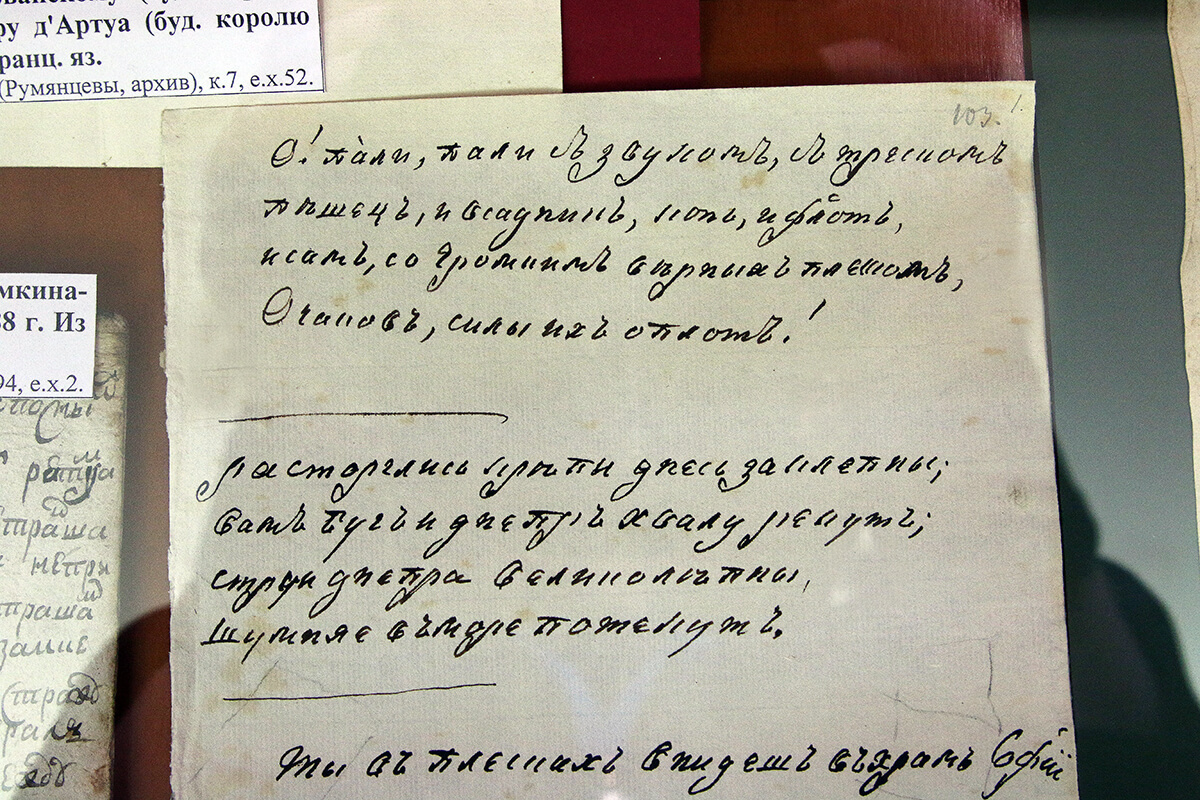 ру д'Артуа (буд. королю
ранц. яз.
(Румянцевы, архив), к.7, е.х.52.
мкина-
88 г. Из
94, е.х.2.
103.
О! пали, пали съ звукомъ, съ трескомъ
пѣшецъ, и всадникъ, конь, и флотъ,
и самъ, со громкимъ вѣрныхъ плескомъ,
Очаковъ, силы ихъ оплотъ!
Расторглись крѣпки днесь заклепны;
самъ бугъ и днепръ хвалу рекутъ;
струи днепра великолѣпны,
шумняе въ море потекутъ.
Ты въ плескахъ внидешь въ храмъ Софіи
траша
траша